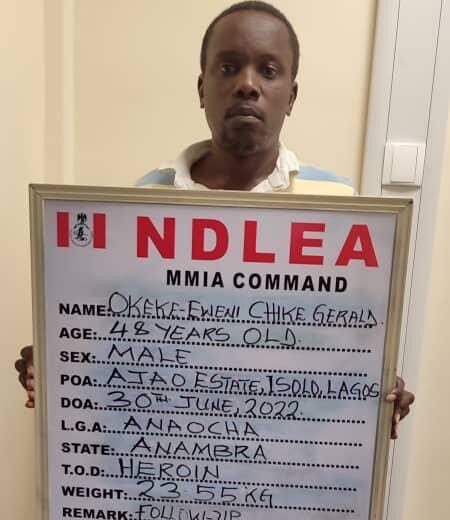 NDLEA
MMIA COMMAND
NAME: OKEKE-EWENI CHIKE GERALD.
AGE: 48 YEARS OLD.
SEX: MALE
POA: AJAO ESTATE, ISOLO, LAGOS
DOA: 30TH JUNE, 2022.
L.G.A: ANAOCHA
STATE: ANAMBRA
T.O.D: HEROIN
WEIGHT: 23.55KG
REMARK: FOLLOW-UP